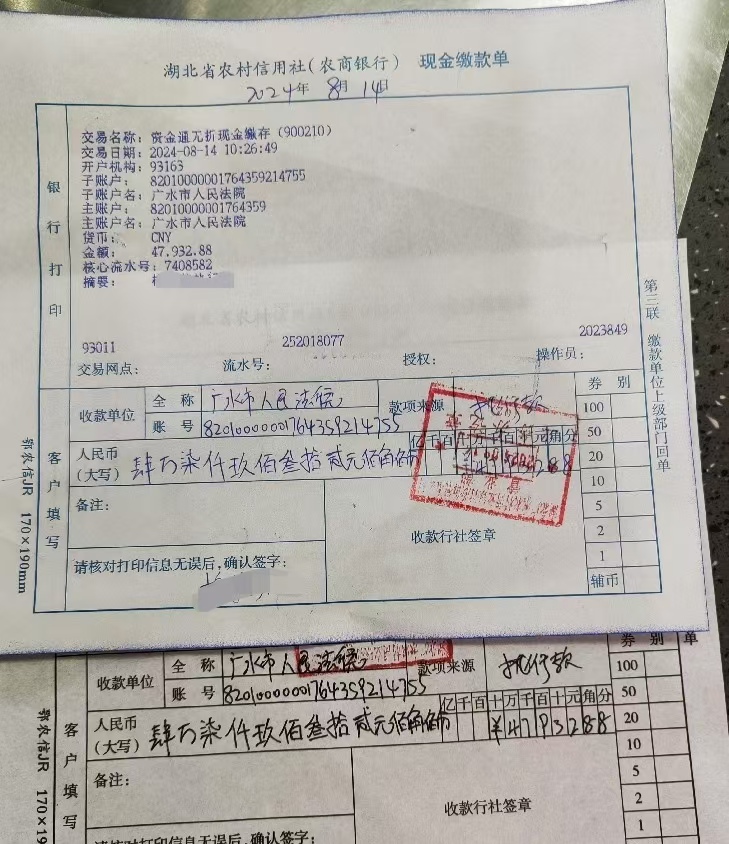 湖北省农村信用社(农商银行) 现金缴款单
2024年 8月 14日
银行打印
交易名称: 资金通无折现金缴存(900210)
交易日期: 2024-08-14 10:26:49
开户机构: 93163
子账户: 82010000001764359214755
子账户名: 广水市人民法院
主账户: 82010000001764359
主账户名: 广水市人民法院
货币: CNY
金额: 47,932.88
核心流水号: 7408582
摘要:
93011 252018077 2023849
交易网点: 流水号: 授权: 操作员:
第三联 缴款单位上级部门回单
鄂农信JR 170×190mm
客户填写
收款单位 全称 广水市人民法院 款项来源 执行款 券别
账号 82010000001764359214755 100
亿千百十万千百十元角分 50
人民币(大写) 肆万柒仟玖佰叁拾贰元捌角捌分 20
10
备注: 5
收款行社签章 2
请核对打印信息无误后,确认签字: 1
辅币
收款单位 全称 广水市人民法院 款项来源 执行款 券别 单
账号 82010000001764359214755 100
亿千百十万千百十元角分 50
人民币(大写) 肆万柒仟玖佰叁拾贰元捌角捌分 ¥4793288 20
10
备注: 5
收款行社签章 2
请核对打印信息无误后,确认签字: 1
客户填写
鄂农信JR 170×190